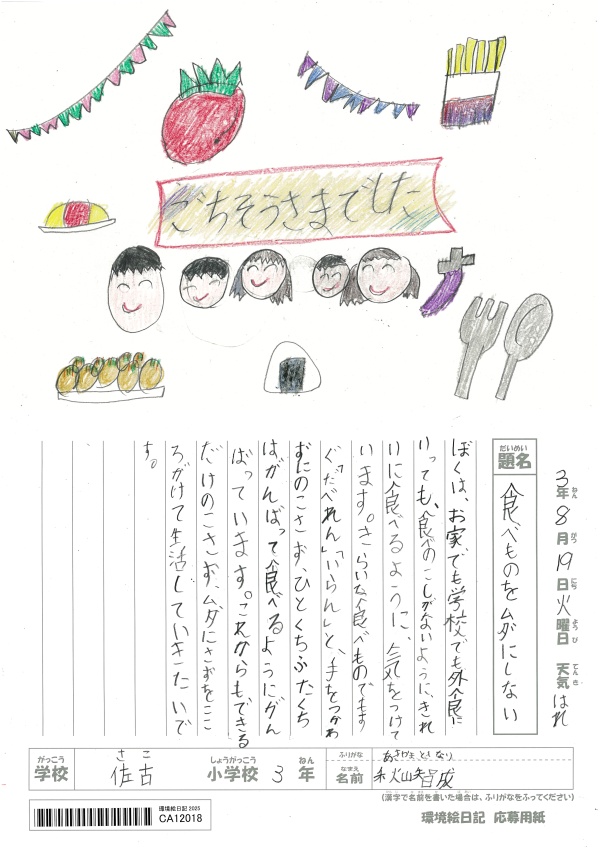 ごちそうさまでした
3年8月19日火曜日 天気 はれ
ねん がつ にち ようび てんき
だいめい
題名
食べものをムダにしない
ぼくは、お家でも学校でも外食に
いっても、食べのこしがないように、きれ
いに食べるように、気をつけて
います。きらいな食べものでもす
ぐ「たべれん」「いらん」と、手をつかわ
ずにのこさず、ひとくちふたくち
はがんばって食べるようにがん
ばっています。これからもできる
だけのこさず、ムダにせずをここ
ろがけて生活していきたいで
す。
がっこう さこ しょうがっこう ねん
学校 佐古 小学校 3年
ふりがな
なまえ
名前 智成
(漢字で名前を書いた場合は、ふりがなをふってください)
環境絵日記 2025
CA12018
環境絵日記 応募用紙